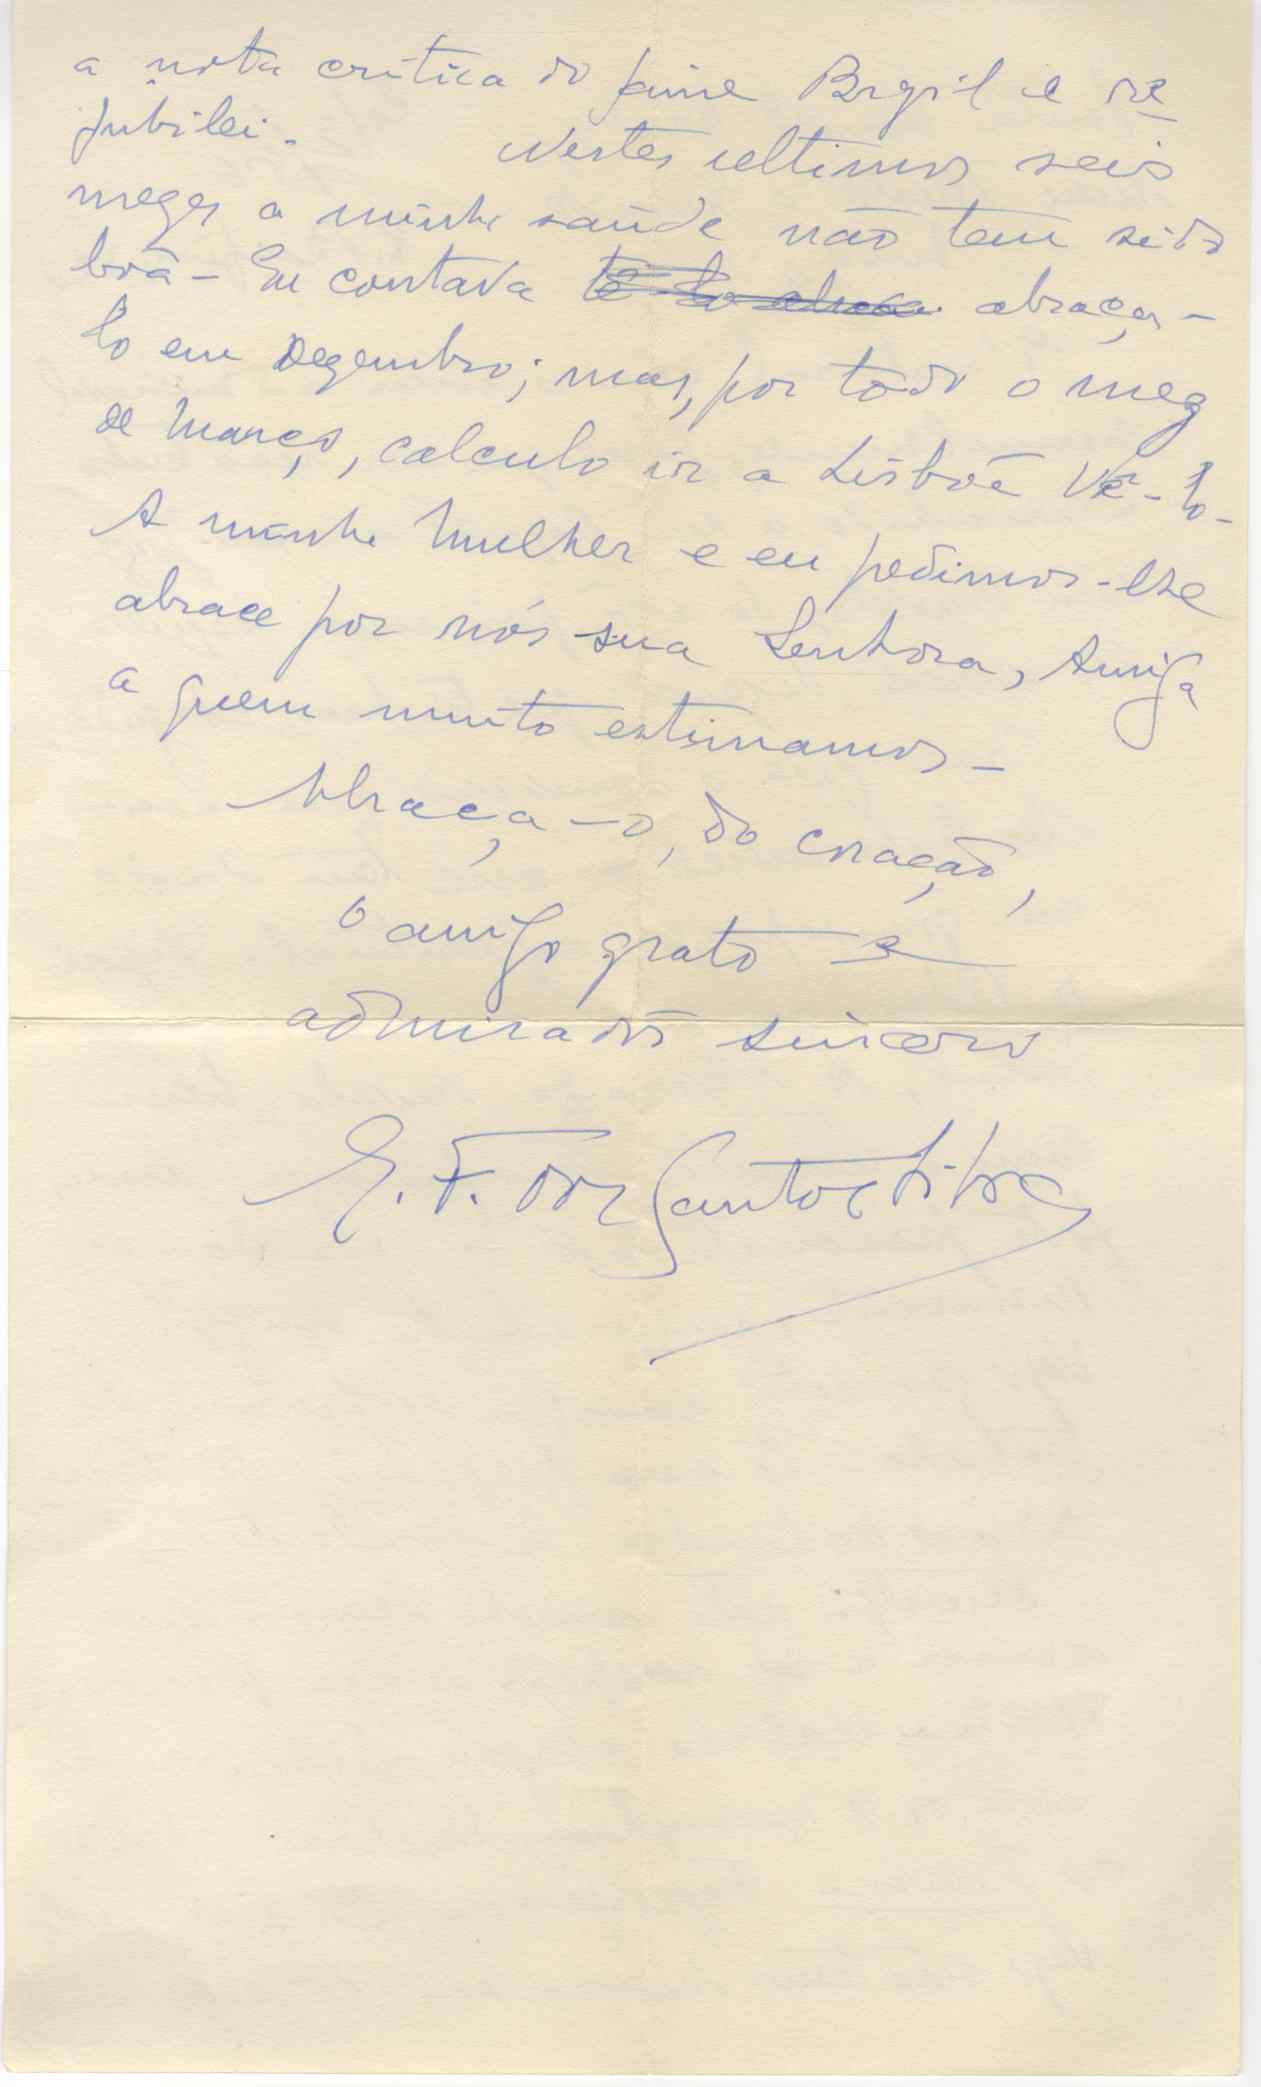 a nota crítica do Jaime Brasil e re
jubilei. Nestes ultimos seis
mezes a minha saúde não tem sido
boã - Eu contava abraça-
lo em Dezembro; mas, por todo o mez
de Março, calculo ir a Lisbôa vê-lo-
A minha Mulher e eu pedimos-lhe
abrace por nós sua Senhora, Amiga
a quem muito estimamos -
Abraça-o, do coração,
o amigo grato e
admirador sincero
E. F. dos Santos Silva